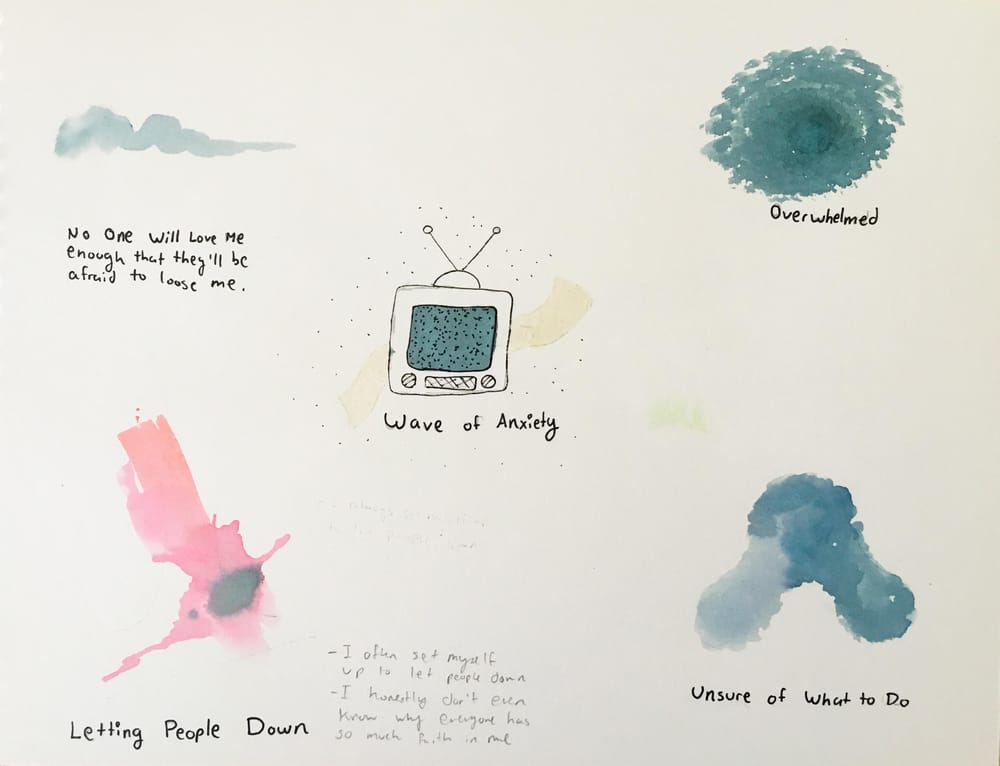 Overwhelmed
No One Will Love Me
enough that they'll be
afraid to loose me.
Wave of Anxiety
- I often set myself
up to let people down
- I honestly don't even
know why everyone has
so much faith in me
Unsure of What to Do
Letting People Down